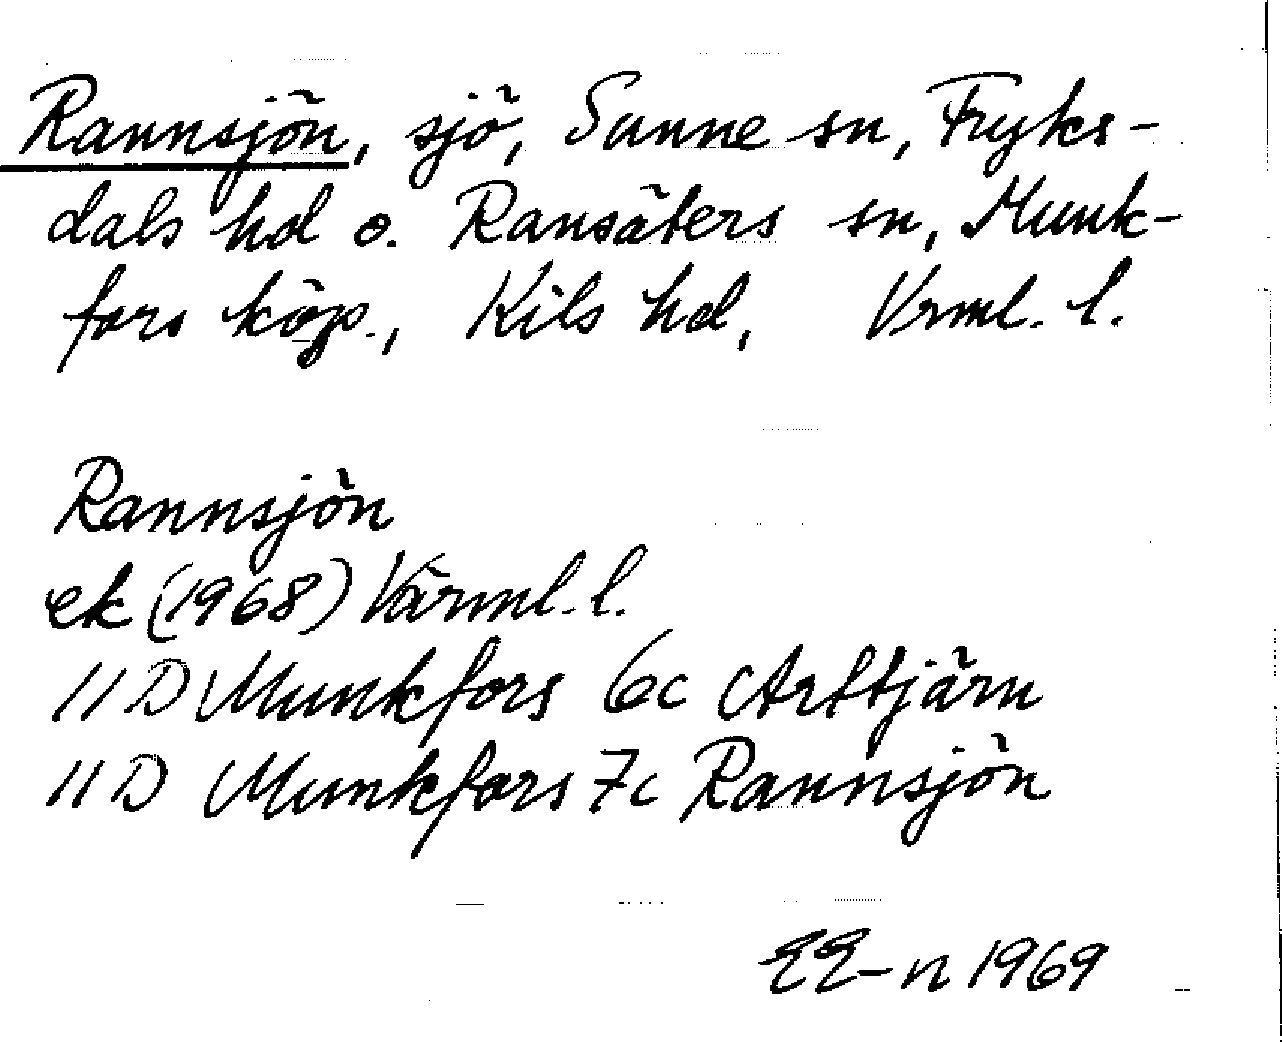 Rannsjön, sjö, Sunne sn, Fryks-
dals hd o. Ransäters sn, Munk-
fors köp., Kils hd, Vrml. l.
Rannsjön
ek (1968) Värml. l.
11 D Munkfors 6c Arttjärn
11 D Munkfors 7c Rannsjön
EE-n 1969